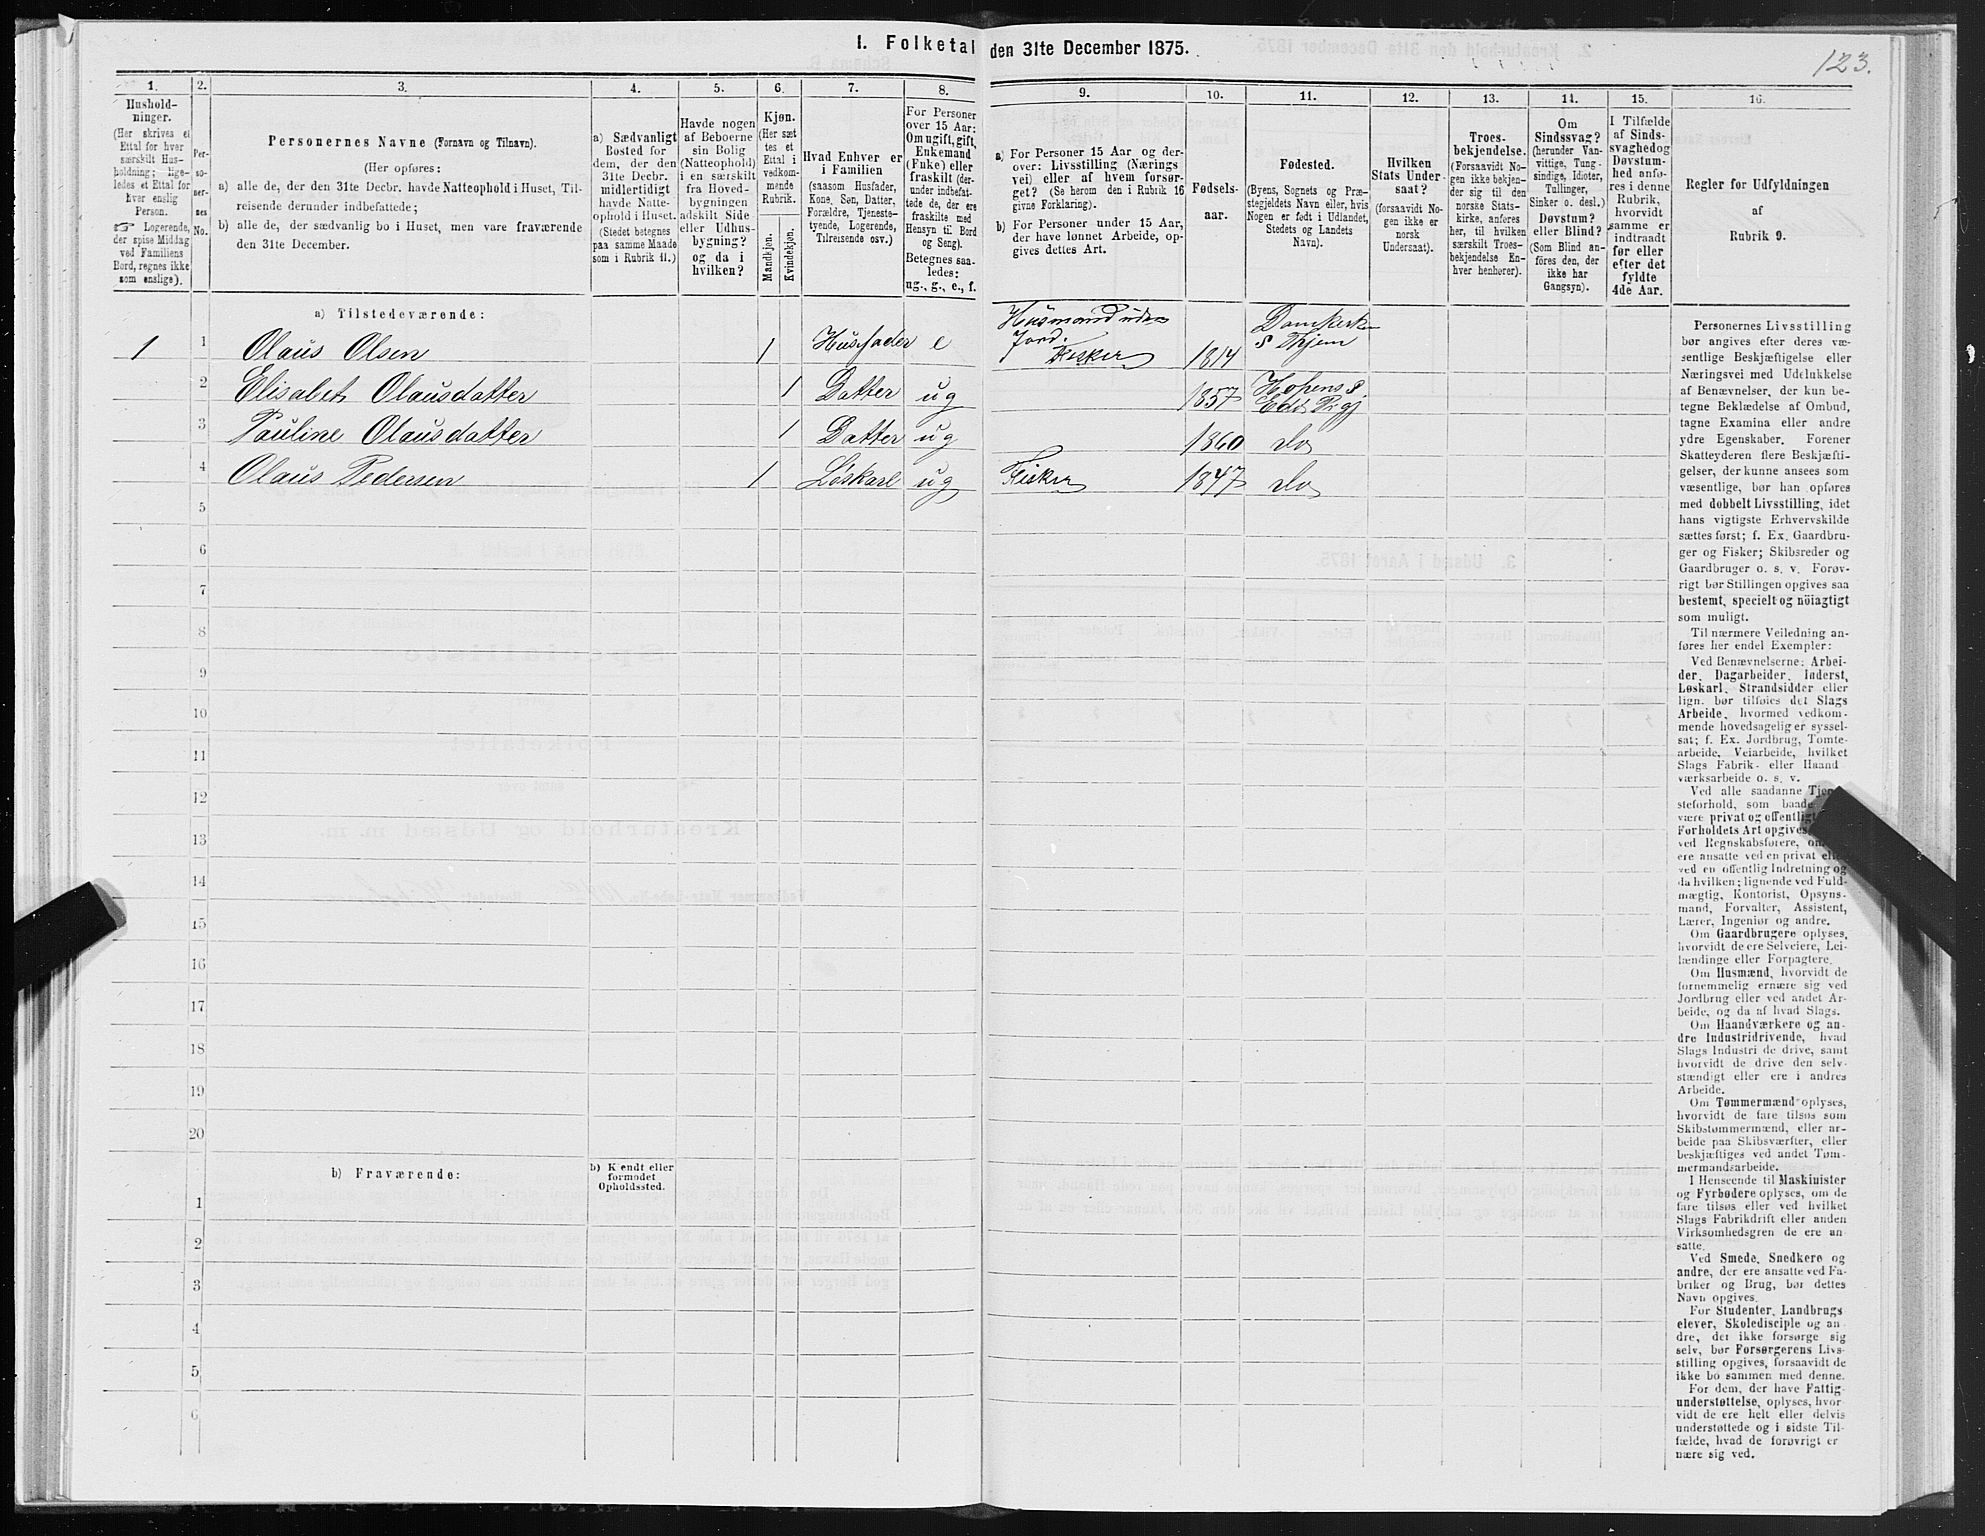 1. Folketal den 31te December 1875.
123.
1.
Hushold-
ninger.
(Her skrives et
Ettal for hver
særskilt Hus-
holdning; lige-
ledes et Ettal for
hver enslig
Person.
☞ Logerende,
der spise Middag
ved Familiens
Bord, regnes ikke
som enslige).
2.
Per-
so-
ner-
nes
No.
3.
Personernes Navne (Fornavn og Tilnavn).
(Her opføres:
a) alle de, der den 31te Decbr. havde Natteophold i Huset, Til-
reisende derunder indbefattede;
b) alle de, der sædvanlig bo i Huset, men vare fraværende
den 31te December.
4.
a) Sædvanligt
Bosted for
dem, der den
31te Decbr.
midlertidigt
havde Natte-
ophold i Huset.
(Stedet betegnes
paa samme Maade
som i Rubrik 11.)
5.
Havde nogen
af Beboerne
sin Bolig
(Natteophold)
i en særskilt
fra Hoved-
bygningen
adskilt Side-
eller Udhus-
bygning?
og da i
hvilken?
6.
Kjøn.
(Her sæt-
tes et
Ettal i
vedkom-
mende
Rubrik.
Mandkjøn.
Kvindekjøn.
7.
Hvad Enhver er
i Familien
(saasom Husfader,
Kone, Søn, Datter,
Forældre, Tjeneste-
tyende, Logerende,
Tilreisende osv.)
8.
For Personer
over 15 Aar:
Om ugift, gift,
Enkemand
(Enke) eller
fraskilt (der-
under indbefat-
tede de, der ere
fraskilte med
Hensyn til Bord
og Seng).
Betegnes saa-
ledes:
ug., g., e., f.
9.
a) For Personer 15 Aar og der-
over: Livsstilling (Nærings
vei) eller af hvem forsør-
get? (Se herom den i Rubrik 16
givne Forklaring).
b) For Personer under 15 Aar,
der have lønnet Arbeide, op-
gives dettes Art.
10.
Fødsels-
aar.
11.
Fødested.
(Byens, Sognets og Præ-
stegjeldets Navn eller, hvis
Nogen er født i Udlandet,
Stedets og Landets
Navn).
12.
Hvilken
Stats Under-
saat?
(forsaavidt No-
gen ikke er
norsk
Undersaat).
13.
Troes-
bekjendelse.
(Forsaavidt No-
gen ikke bekjen-
der sig til den
norske Stats-
kirke, anføres
her, til hvilken
særskilt Troes-
bekjendelse En-
hver henhører).
14.
Om
Sindssvag?
(herunder Van-
vittige, Tung-
sindige, Idioter,
Tullinger,
Sinker o. desl.)
Døvstum?
eller Blind?
(Som Blind an-
føres den, der
ikke har
Gangsyn).
15.
I Tilfælde
af Sinds-
svaghed og
Døvstum-
hed anfø-
res i denne
Rubrik,
hvorvidt
samme er
indtraadt
før eller
efter det
fyldte
4de Aar.
16.
Regler for Udfyldningen
af
Rubrik 9.
a) Tilstedeværende:
1 1 Olaus Olsen 1 Husfader e Husmand uden Jord. Fisker 1814
2 Elisabet Olausdatter 1 Datter ug 1857
3 Pauline Olausdatter 1 Datter ug 1860 do
4 Olaus Pedersen 1 Løskarl ug Fisker 1847 do
5
6
7
8
9
10
11
12
13
14
15
16
17
18
19
20
b) Fraværende:
b) Kjendt eller
formodet
Opholdssted.
1
2
3
4
5
6
Personernes Livsstilling
bør angives efter deres væ-
sentlige Beskjæftigelse eller
Næringsvei med Udelukkelse
af Benævnelser, der kun be-
tegne Beklædelse af Ombud,
tagne Examina eller andre
ydre Egenskaber. Forener
Skatteyderen flere Beskjæfti-
gelser, der kunne ansees som
væsentlige, bør han opføres
med dobbelt Livsstilling, idet
hans vigtigste Erhvervskilde
sættes først; f. Ex. Gaardbru-
ger og Fisker; Skibsreder og
Gaardbruger o. s. v. Forøv-
rigt bør Stillingen opgives saa
bestemt, specielt og nöiagtigt
som muligt.
Til nærmere Veiledning an-
føres her endel Exempler:
Ved Benævnelserne: Arbei-
der, Dagarbeider, Inderst,
Løskarl, Strandsidder eller
lign. bør tilføies det Slags
Arbeide, hvormed vedkom-
mende hovedsagelig er syssel-
sat; f. Ex. Jordbrug, Tomte-
arbeide, Veiarbeide, hvilket
Slags Fabrik- eller Haand
værksarbeide o. s. v.
Ved alle saadanne
steforhold, som baade
være privat og offentligt
Forholdets Art opgives,
ved Regnskabsførere,
ere ansatte ved en privat
ved en offentlig Indretning og
da hvilken; lignende ved Fuld-
mægtig, Kontorist, Opsyns-
mand, Forvalter, Assistent,
Lærer, Ingeniør og andre.
Om Gaardbrugere oplyses,
hvorvidt de ere Selveiere, Lei-
lændinge eller Forpagtere.
Om Husmænd, hvorvidt de
fornemmelig ernære sig ved
Jordbrug eller ved andet Ar-
beide, og da af hvad Slags.
Om Haandværkere og an-
dre Industridrivende, hvad
Slags Industri de drive, samt
hvorvidt de drive den selv-
stændigt eller ere i andres
Arbeide.
Om Tømmermænd oplyses,
hvorvidt de fare tilsøs som
Skibstømmermænd, eller ar-
beide paa Skibsværfter, eller
beskjæftiges ved andet Tøm-
mermandsarbeide.
I Henseende til Maskinister
og Fyrbødere oplyses, om de
fare tilsøs eller ved hvilket
Slags Fabrikdrift eller anden
Virksomhedsgren de ere an-
satte.
Ved Smede, Snedkere og
andre, der ere ansatte ved Fa-
briker og Brug, bør dettes
Navn opgives.
For Studenter, Landbrugs
elever, Skoledisciple og an-
dre, der ikke forsørge sig
selv, bør Forsørgerens Livs-
stilling opgives, forsaavidt de
ikke bo sammen med denne.
For dem, der have Fattig-
understøttelse, oplyses, hvor-
vidt de ere helt eller delvis
understøttede og i sidste Til-
fælde, hvad de forøvrigt er
nære sig ved.